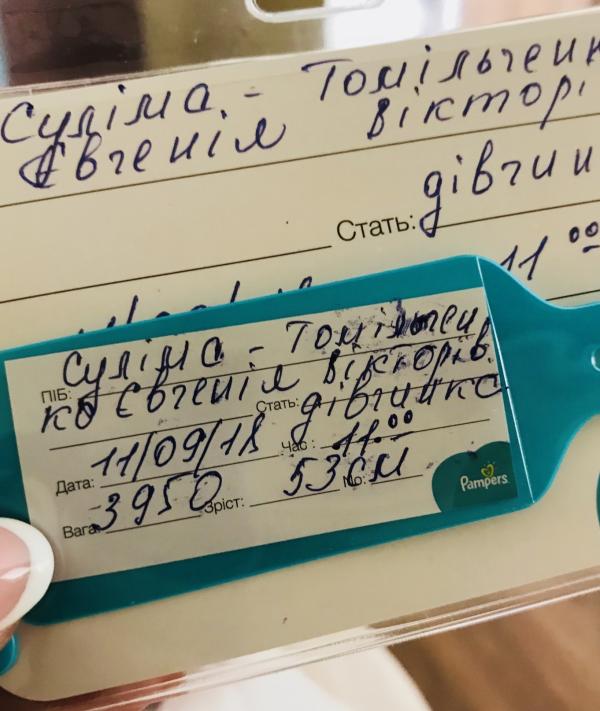 Суліма - Томільченк
Євгенія Вікторі
Стать: дівчин
11 00
Суліма - Томільчен
ПІБ:
ко Євгенія Вікторів.
Стать: дівчинка
Дата: 11/09/18 Час: 11.00
Вага: 3950 Зріст: 53 см No:
Pampers